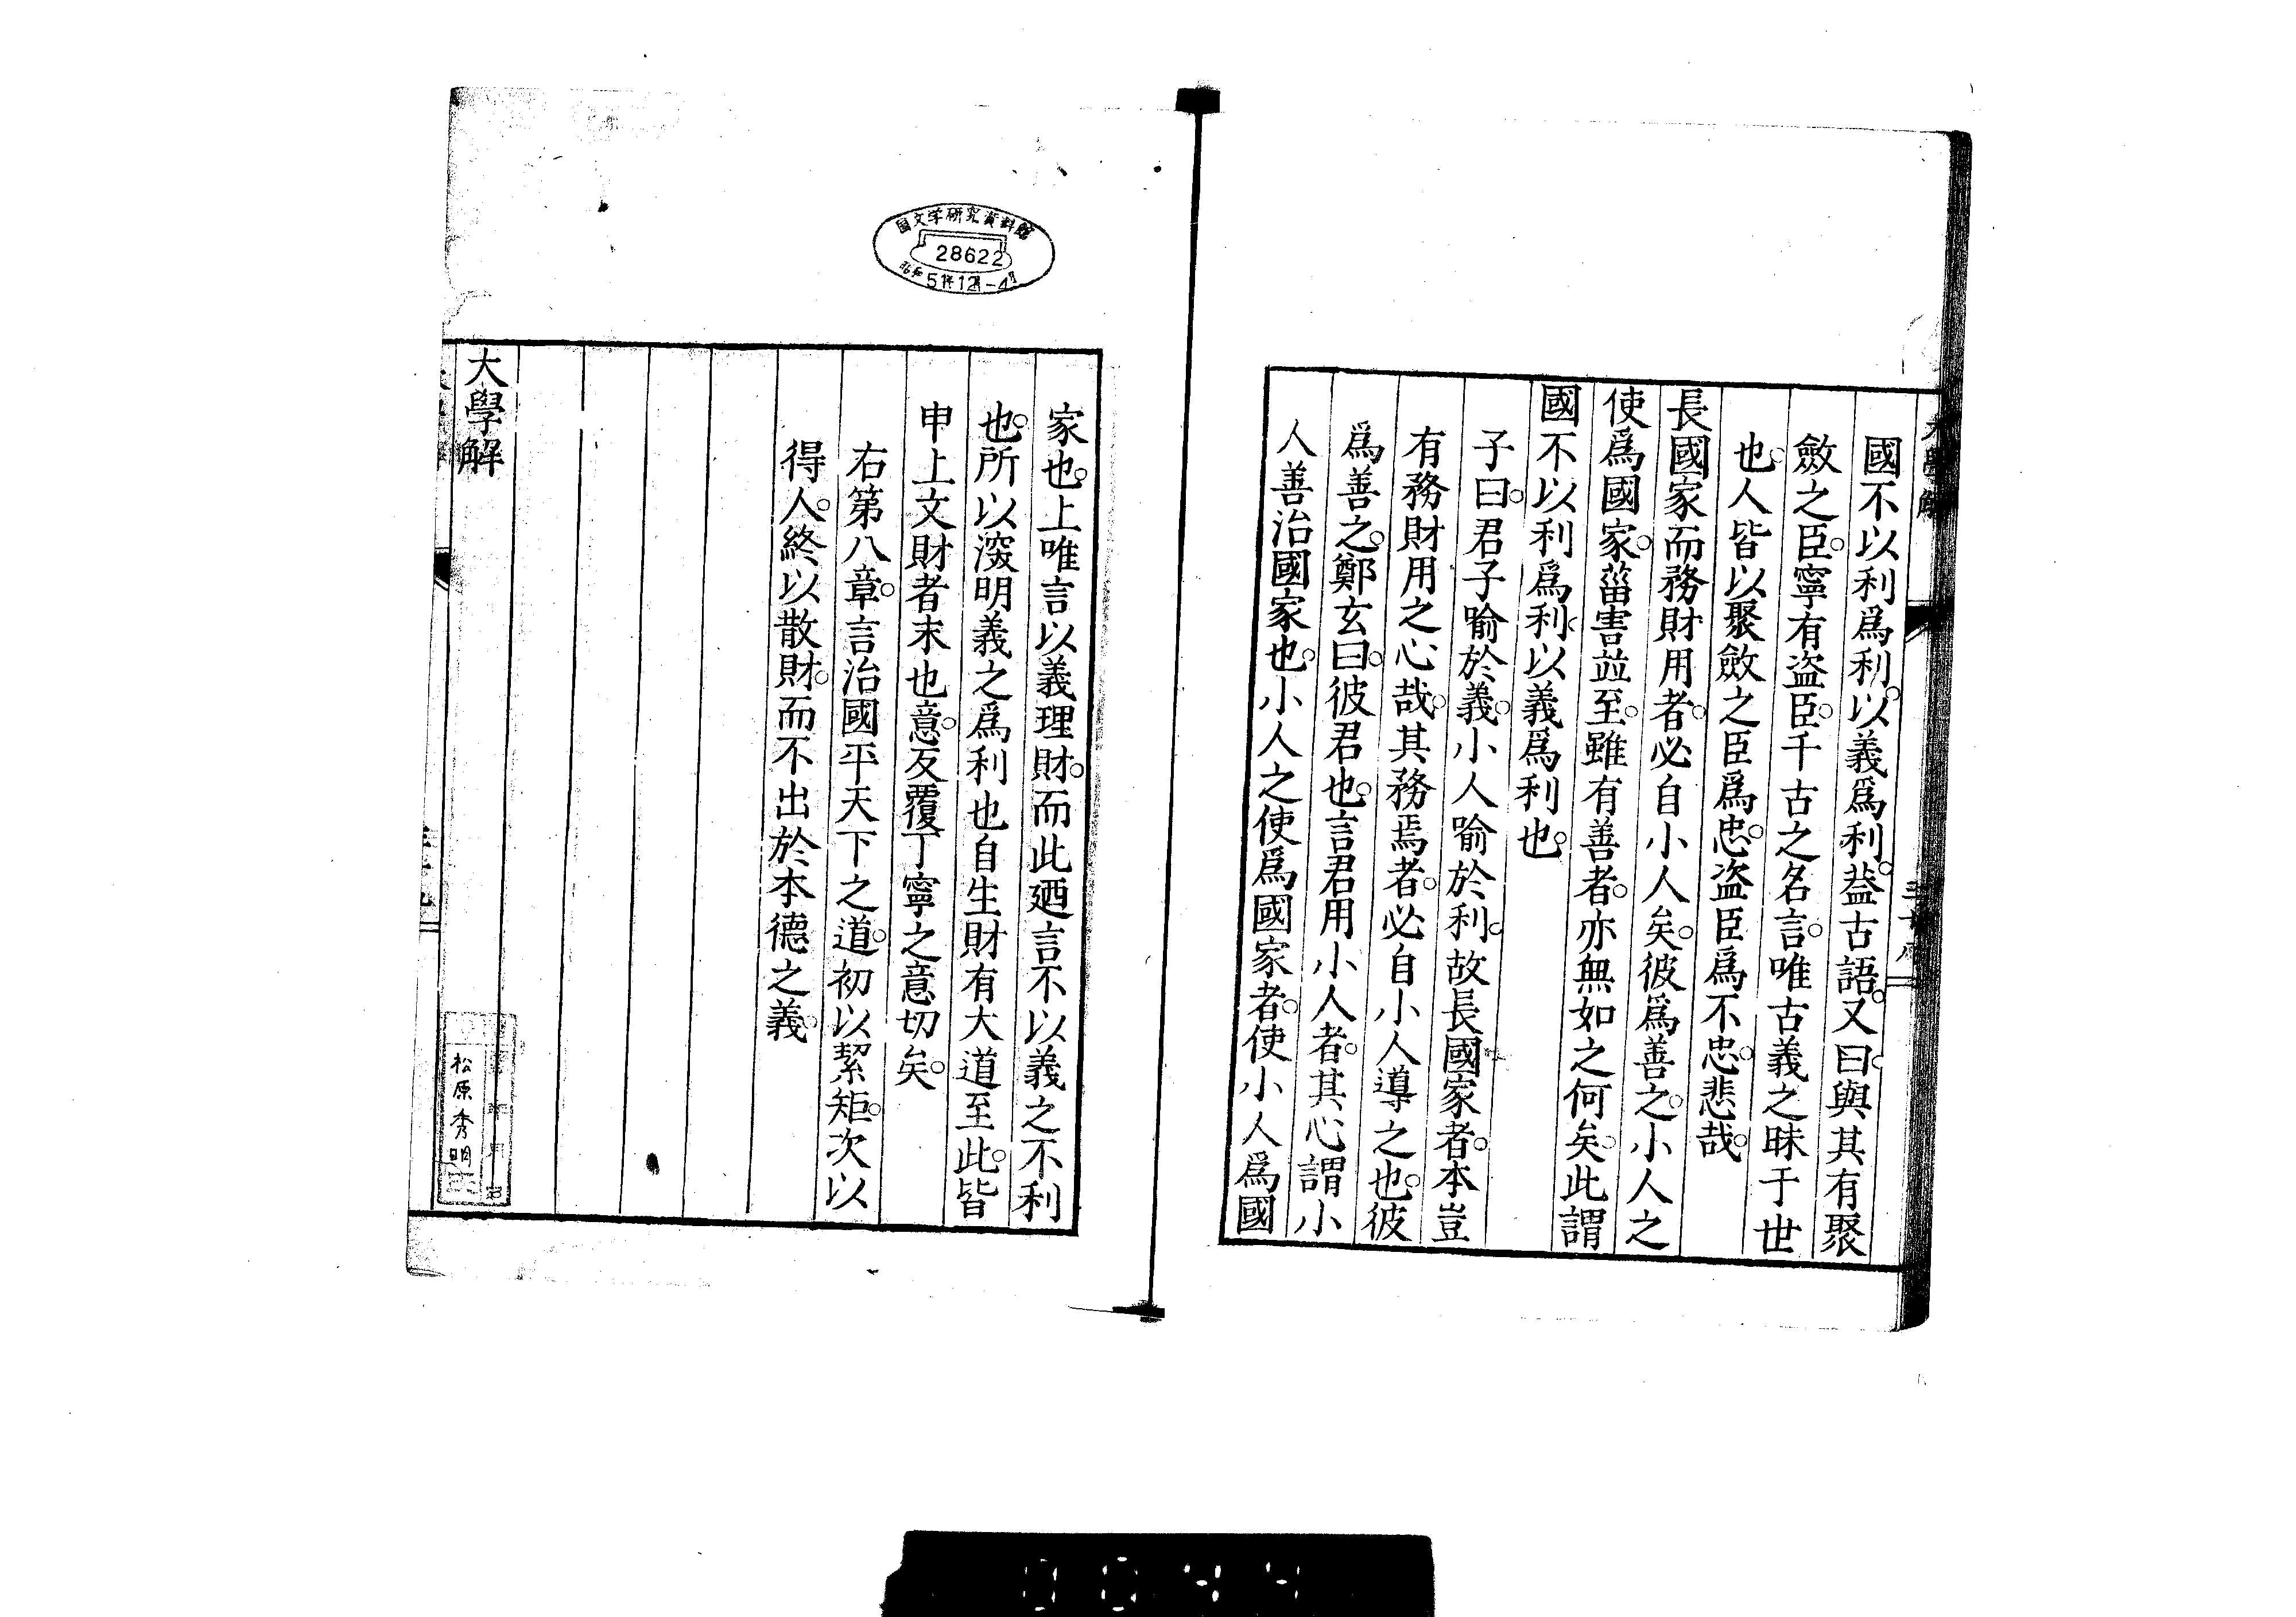 國不以利爲利。以義爲利。葢古語。又曰。與其有聚
斂之臣。寧有盜臣。千古之名言。唯古義之昧于世
也。人皆以聚斂之臣爲忠。盜臣爲不忠。悲哉。
長國家而務財用者。必自小人矣。彼爲善之。小人之
使爲國家。菑害並至。雖有善者。亦無如之何矣。此謂
國不以利爲利。以義爲利也。
子曰。君子喻於義。小人喻於利。故長國家者。本豈
有務財用之心哉。其務焉者。必自小人導之也。彼
爲善之。鄭玄曰。彼君也。言君用小人者。其心謂小
人善治國家也。小人之使爲國家者。使小人爲國
家也。上唯言以義理財。而此廼言不以義之不利
也。所以深明義之爲利也自生財有大道至此。皆
申上文財者末也意。反覆丁寧之意切矣。
右第八章。言治國平天下之道。初以絜矩。次以
得人。終以散財。而不出於本德之義。
大學解
国文学研究資料館
28622
昭和51年12月-4日
松原秀明
0044